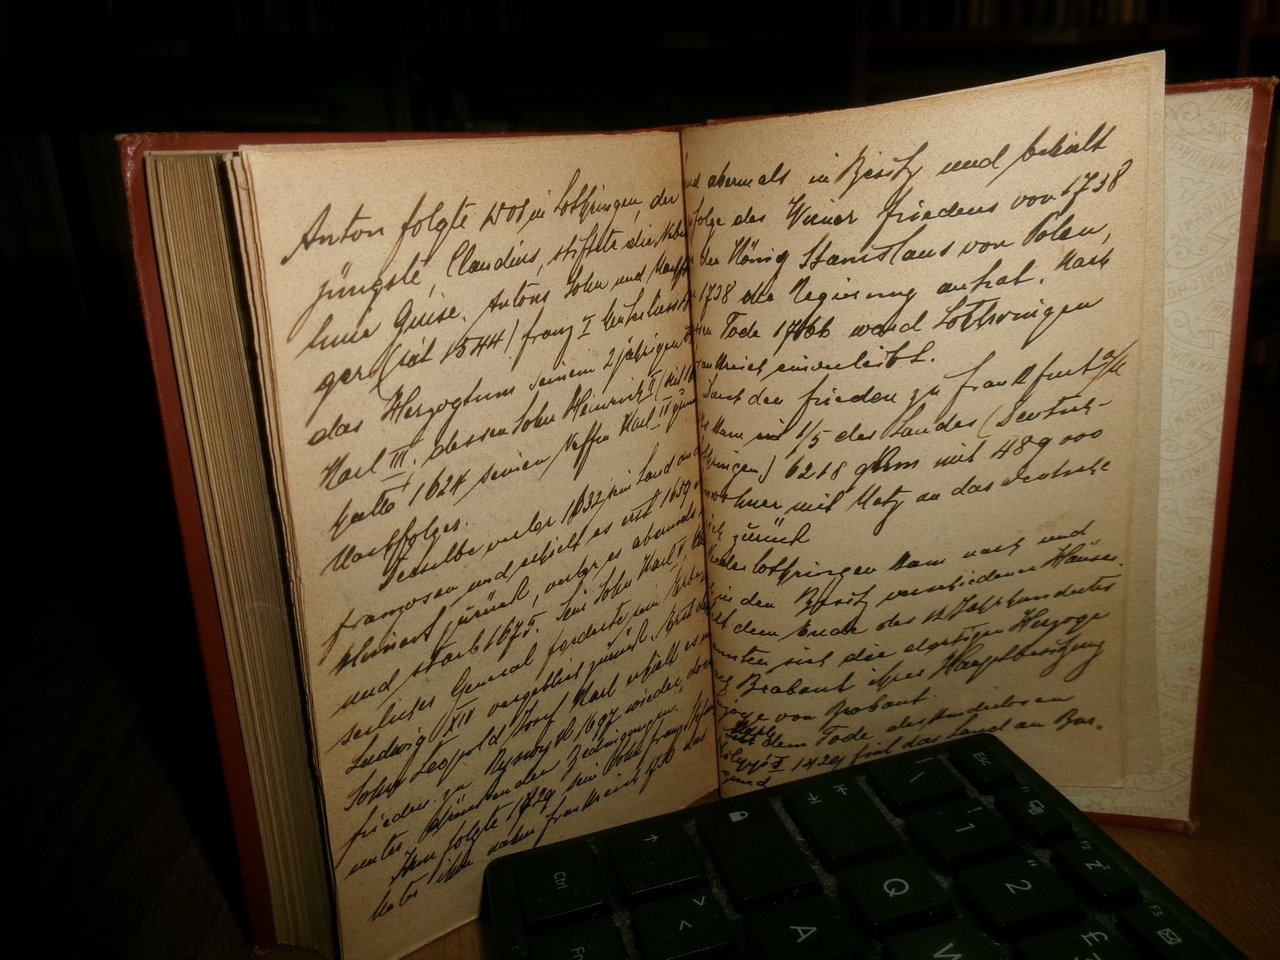 Anton folgte 1508 in Lothringen, der
jüngste, Claudius, stiftete die Neben
linie Guise. Antons Sohn und Nachfol
ger (seit 1544) Franz I hinterliess
das Herzogtum seinem 2jährigen
Karl III. dessen Sohn Heinrich II (seit
hatte 1624 seinen Neffen Karl IV zum
Nachfolger.
Derselbe verlor 1632 sein Land an die
Franzosen und erhielt es erst 1659
kleinert zurück, verlor es abermals
und starb 1675. Sein Sohn Karl V
General forderte sein Erbe
Ludwig XIV vergeblich zurück. Erst
Sohn Leopold Josef Karl erhielt es im
Frieden zu Ryswyk 1697 wieder,
unter drückenden Bedingungen.
Ihm folgte 1729 sein Sohn Franz Stefan
Frankreich das
und abermals in Besitz und behielt
folge des Wiener Friedens von 1738
der König Stanislaus von Polen,
1738 die Regierung antrat. Nach
Tode 1766 ward Lothringen
Frankreich einverleibt.
Durch den Frieden zu Frankfurt a/M
kam 1/5 des Landes (Deutsch-
lothringen) 6218 qkm mit 489 000
Einwohner mit Metz an das deutsche
zurück
Niederlothringen kam nach und
in den Besitz verschiedener Häuser.
seit dem Ende des 12 Jahrhunderts
nannten sich die dortigen Herzoge
nach Brabant ihrer Hauptbesitzung
von Brabant
Nach dem Tode des kinderlosen
1429 fiel das Land an Bur-
gund
Ctrl
Fn
A
Q
W
1
!
2
"
£
\
|
Esc
F1
F2
F3
Z
<
>